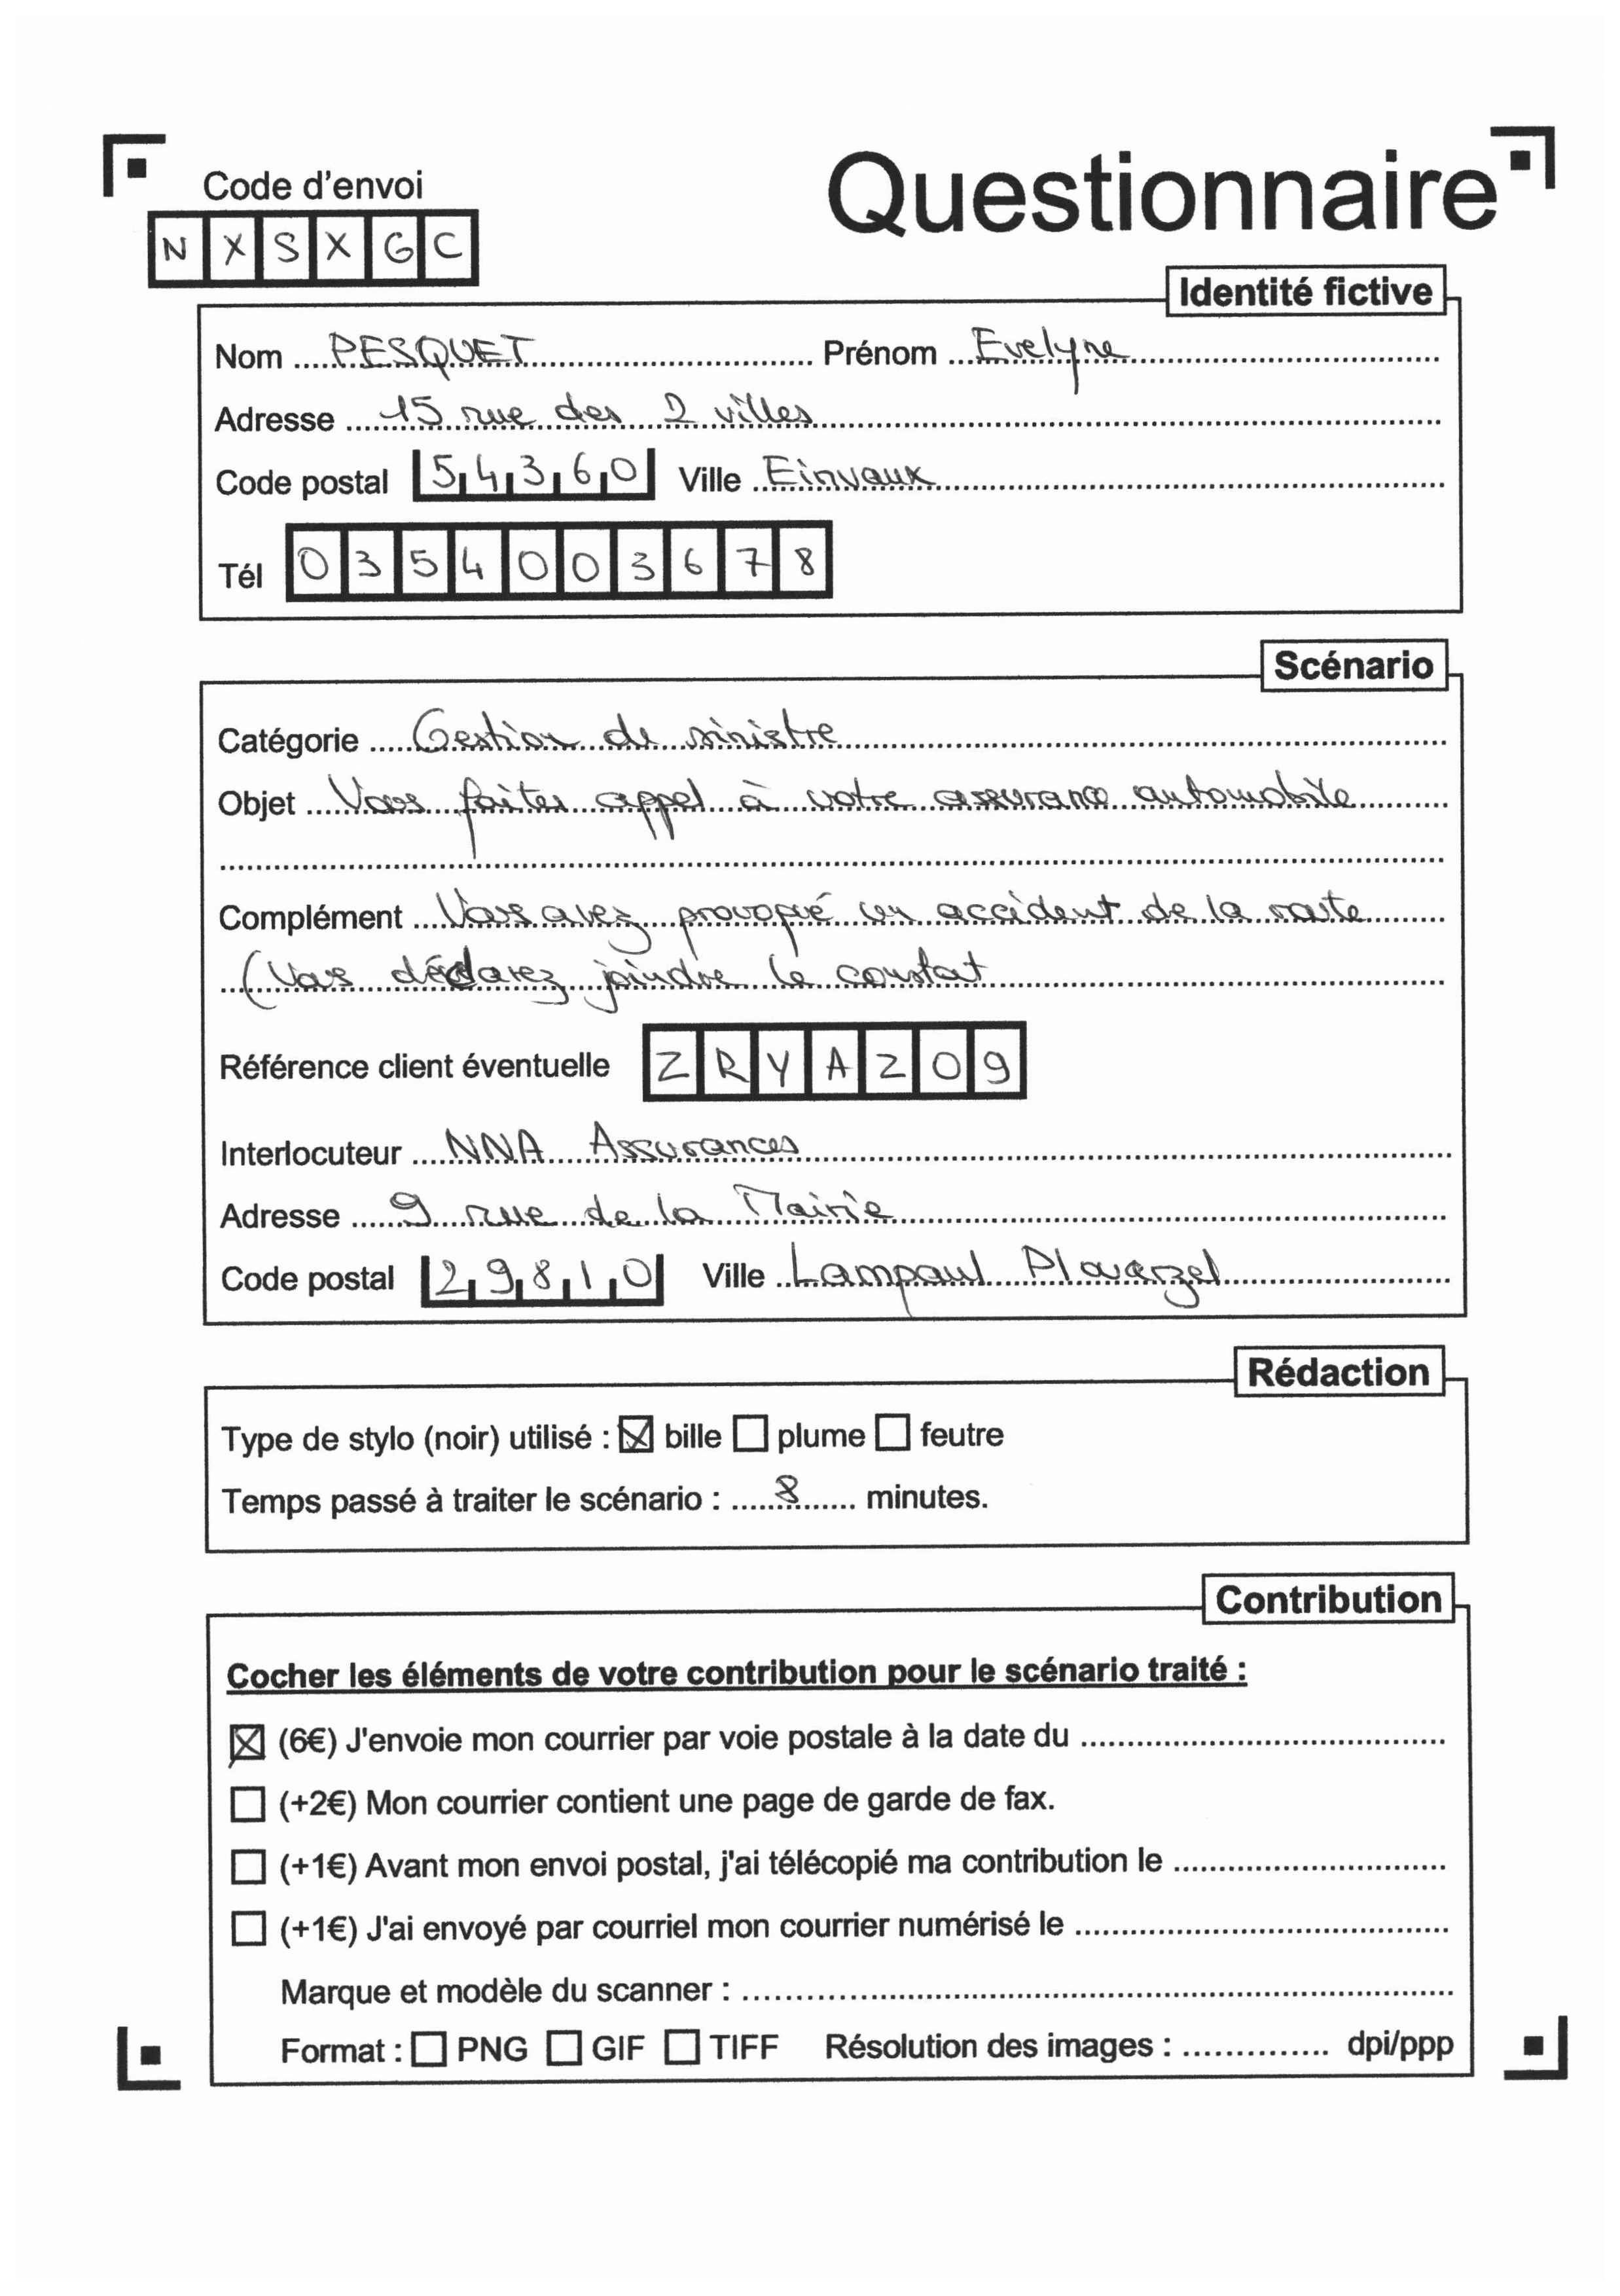 Questionnaire
Code d'envoi
N X S X G C
Identité fictive
Nom ..... PESQUET ..... Prénom ..... Evelyne .....
Adresse ..... 15 rue des 2 villes .....
Code postal 54360 Ville ..... Einvaux .....
Tél 0354003678
Scénario
Catégorie ..... Gestion de sinistre .....
Objet ..... Vous faites appel à votre assurance automobile .....
Complément ..... Vous avez provoqué un accident de la route .....
(Vous déclarez joindre le constat .....
Référence client éventuelle ZRYAZ09
Interlocuteur ..... NNA Assurances .....
Adresse ..... 9 rue de la Mairie .....
Code postal 29810 Ville ..... Lampaul Plouarzel .....
Rédaction
Type de stylo (noir) utilisé : ☒ bille ☐ plume ☐ feutre
Temps passé à traiter le scénario : ..... 8 ..... minutes.
Contribution
Cocher les éléments de votre contribution pour le scénario traité :
☒ (6€) J'envoie mon courrier par voie postale à la date du .....
☐ (+2€) Mon courrier contient une page de garde de fax.
☐ (+1€) Avant mon envoi postal, j'ai télécopié ma contribution le .....
☐ (+1€) J'ai envoyé par courriel mon courrier numérisé le .....
Marque et modèle du scanner : .....
Format : ☐ PNG ☐ GIF ☐ TIFF Résolution des images : ..... dpi/ppp